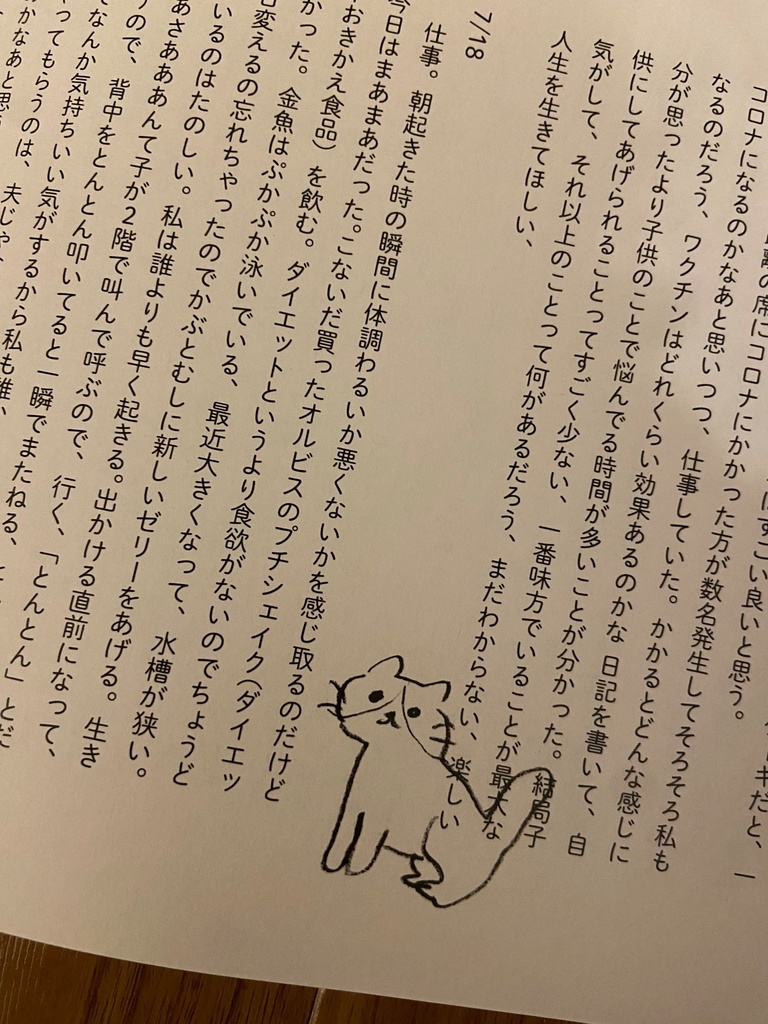 だと、一
はすごい良いと思う。
距離の席にコロナにかかった方が数名発生してそろそろ私も
コロナになるのかなあと思いつつ、仕事していた。かかるとどんな感じに
なるのだろう、ワクチンはどれくらい効果あるのかな 日記を書いて、自
分が思ったより子供のことで悩んでる時間が多いことが分かった。結局子
供にしてあげられることってすごく少ない、一番味方でいることが最大な
気がして、それ以上のことって何があるだろう、まだわからない、楽しい
人生を生きてほしい、
7/18
仕事。朝起きた時の瞬間に体調わるいか悪くないかを感じ取るのだけど
今日はまあまあだった。こないだ買ったオルビスのプチシェイク(ダイエッ
おきかえ食品)を飲む。ダイエットというより食欲がないのでちょうど
かった。金魚はぷかぷか泳いでいる、最近大きくなって、水槽が狭い。
変えるの忘れちゃったのでかぶとむしに新しいゼリーをあげる。生き
いるのはたのしい。私は誰よりも早く起きる。出かける直前になって、
あさあああんて子が2階で叫んで呼ぶので、行く、「とんとん」とだ
ので、背中をとんとん叩いてると一瞬でまたねる、
なんか気持ちいい気がするから私も誰
やってもらうのは、夫じゃ
かなあと思